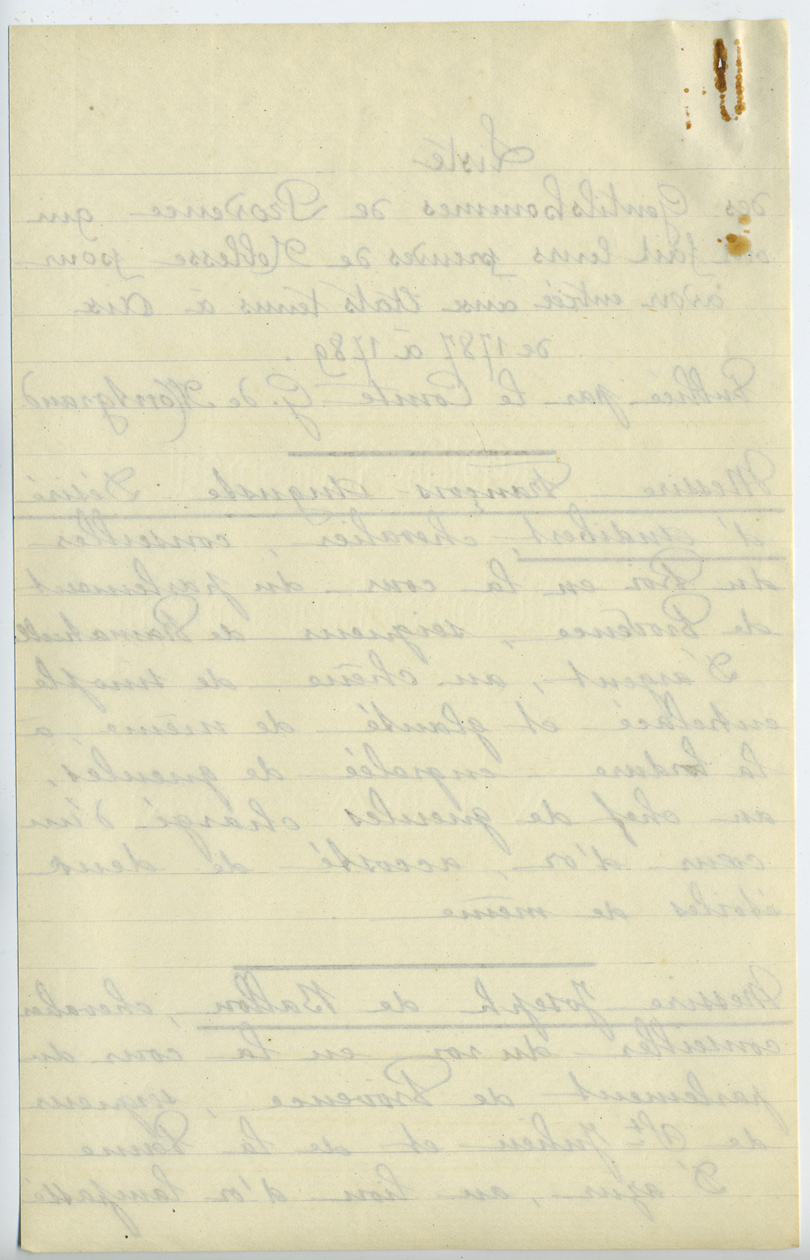 Liste
des Gentilshommes de Provence qui
ont fait leurs preuves de Noblesse pour
avoir entrée aux Etats tenus à Aix
de 1787 à 1789.
Publiée par le Comte G. de Montgrand
Messire François Auguste Désiré
d'Audibert, chevalier, conseiller
du Roi en la cour du parlement
de Provence, seigneur de Ramatuelle
D'argent, au chêne de sinople
entrelacé et glanté de même, à
la bordure engrelée de gueules,
au chef de gueules chargé d'un
cœur d'or, accosté de deux
étoiles de même
Messire Joseph de Ballon, chevalier
conseiller du roi en la cour du
parlement de Provence, seigneur
de St Julien et de la
D'azur, au lion d'or lampassé